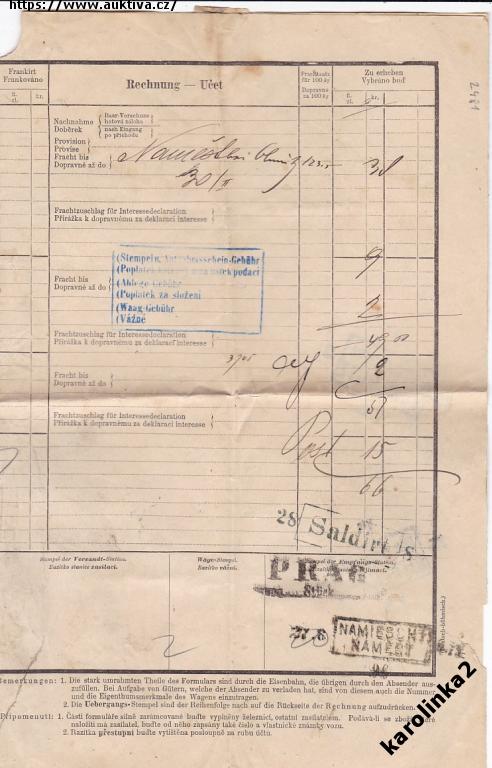 https://www.auktiva.cz/
Frankirt
Frankováno
fl.
zl.
kr.
Rechnung — Učet
Frachtsatz
für 100 kg
Dopravné
za 100 kg
Zu erheben
Vybráno buď
fl.
zl.
kr.
2421
Nachnahme
Doběrek
Baar-Vorschuss
hotová záloha
nach Eingang
po příchodu
Provision
Provise
Fracht bis
Dopravné až do
30/II
38
Frachtzuschlag für Interessedeclaration
Přirážka k dopravnému za deklaraci interesse
9
(Stempeln, Aufnahmsschein-Gebühr
(Poplatek
podací
(Ablege-Gebühr
(Poplatek za složení
(Waag-Gebühr
(Vážné
Fracht bis
Dopravné až do
2
Frachtzuschlag für Interessedeclaration
Přirážka k dopravnému za deklaraci interesse
49
Fracht bis
Dopravné až do
2
51
Frachtzuschlag für Interessedeclaration
Přirážka k dopravnému za deklaraci interesse
Post 15
66
28
Saldirt
Stempel der Versandt-Station.
Razítko stanice zasílací.
Wäge-Stempel.
Razítko vážní.
Stempel der Empfangs-Station.
PRAG
Stück
2
27. 8
NAMIESCHT
NAMĚŠT
96
Bemerkungen: 1. Die stark umrahmten Theile des Formulars sind durch die Eisenbahn, die übrigen durch den Absender aus-
zufüllen. Bei Aufgabe von Gütern, welche der Absender zu verladen hat, sind von diesem auch die Nummer
und die Eigenthumsmerkmale des Wagens einzutragen.
2. Die Uebergangs-Stempel sind der Reihenfolge nach auf die Rückseite der Rechnung aufzudrücken.
Připamenutí: 1. Části formuláře silně zarámované buďte vyplněny železnicí, ostatní zasílatelem. Podává-li se zboží, které
naložiti má zasílatel, buďte od něho zapsány také číslo a vlastnické známky vozu.
2. Razítka přestupní buďte vytištěna posloupně za rubu účtu.
karolinka2